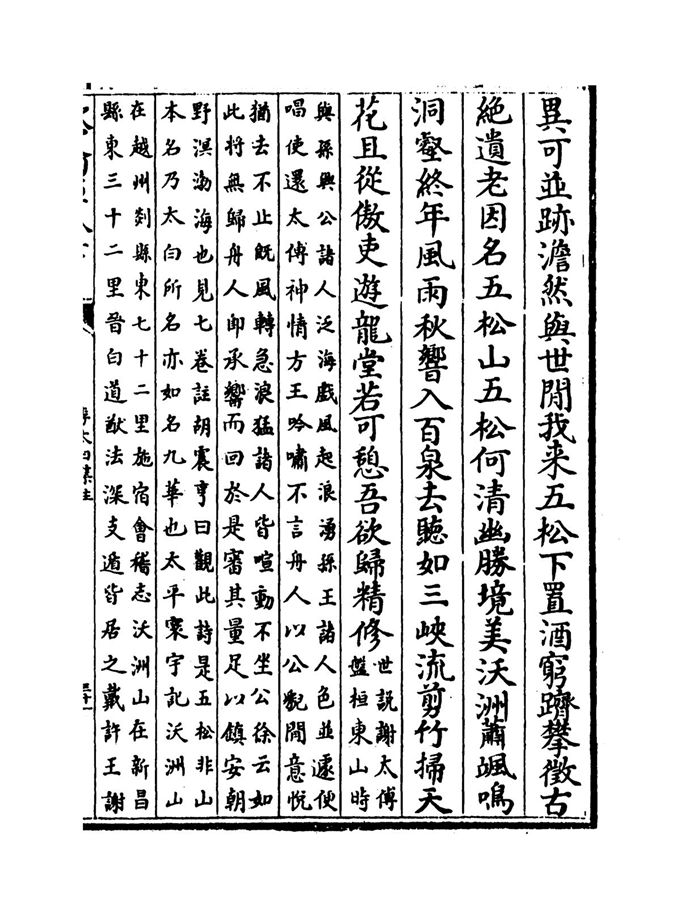 異可並跡澹然與世閒我来五松下置酒窮躋攀徵古
絶遺老因名五松山五松何清幽勝境美沃洲蕭颯鳴
洞壑終年風雨秋響入百泉去聽如三峽流剪竹掃天
花且從傲吏遊龍堂若可憩吾欲歸精修
世說謝太傅
盤桓東山時
與孫興公諸人泛海戲風起浪湧孫王諸人色並遽便
唱使還太傅神情方王吟嘯不言舟人以公貌閒意悅
猶去不止旣風轉急浪猛諸人皆喧動不坐公徐云如
此將無歸舟人卽承響而回於是審其量足以鎮安朝
野溟渤海也見七卷註胡震亨曰觀此詩是五松非山
本名乃太白所名亦如名九華也太平寰宇記沃洲山
在越州剡縣東七十二里施宿會稽志沃洲山在新昌
縣東三十二里晉白道猷法深支遁皆居之戴許王謝
李太白集注